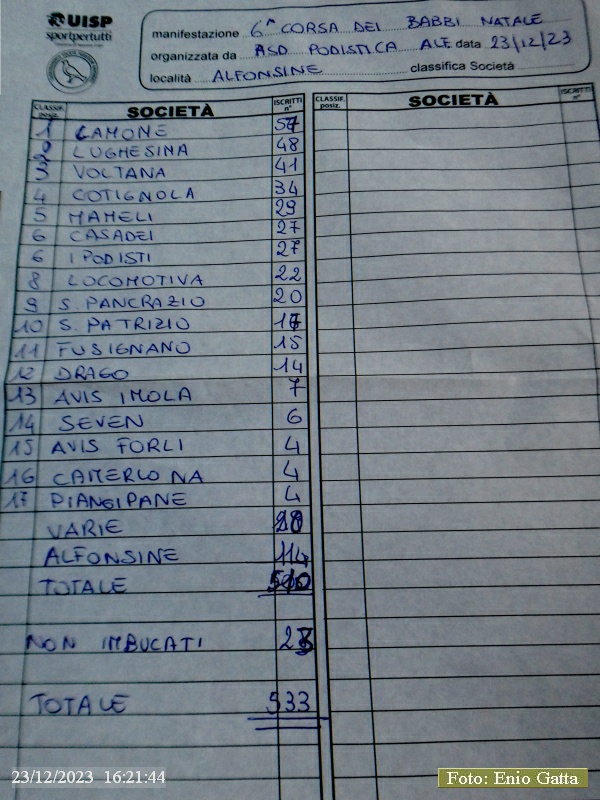 UISP
sportpertutti
manifestazione 6^ CORSA DEI BABBI NATALE
organizzata da ASD PODISTICA ALF data 23/12/23
località ALFONSINE classifica Società
CLASSIF. posiz. SOCIETÀ ISCRITTI n° CLASSIF. posiz. SOCIETÀ ISCRITTI n°
1 CAMONE 57
2 LUGHESINA 48
3 VOLTANA 41
4 COTIGNOLA 34
5 MAMELI 29
6 CASADEI 27
6 I PODISTI 27
8 LOCOMOTIVA 22
9 S. PANCRAZIO 20
10 S. PATRIZIO 17
11 FUSIGNANO 15
12 DRAGO 14
13 AVIS IMOLA 7
14 SEVEN 6
15 AVIS FORLI 4
16 CAMERLONA 4
17 PIANGIPANE 4
VARIE 20
ALFONSINE 114
TOTALE 510
NON IMBUCATI 23
TOTALE 533
23/12/2023 16:21:44
Foto: Enio Gatta